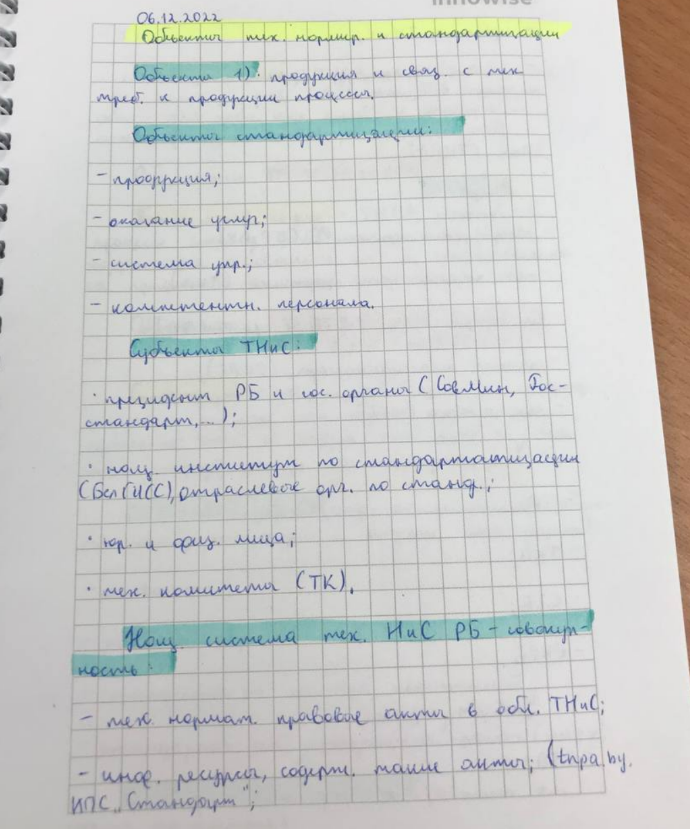 innowise
06.12.2022
Объекты тех. нормир. и стандартизации
Объекты 1): продукция и связ. с тех
треб. к продукции процессы.
Объекты стандартизации:
- продукция;
- оказание услуг;
- система упр.;
- компетентн. персонала.
Субъекты ТНиС:
· президент РБ и гос. органы (СовМин, Гос-
стандарт,...);
· нац. институт по стандартатизации
(БелГИСС), отраслевые орг. по станд.;
· юр. и физ. лица;
· тех. комитеты (ТК).
Нац. система тех. НиС РБ - совокуп-
ность:
- тех. нормат. правовые акты в обл. ТНиС;
- инф. ресурсы, содерж. такие акты; (tnpa.by.
ИПС „Стандарт";